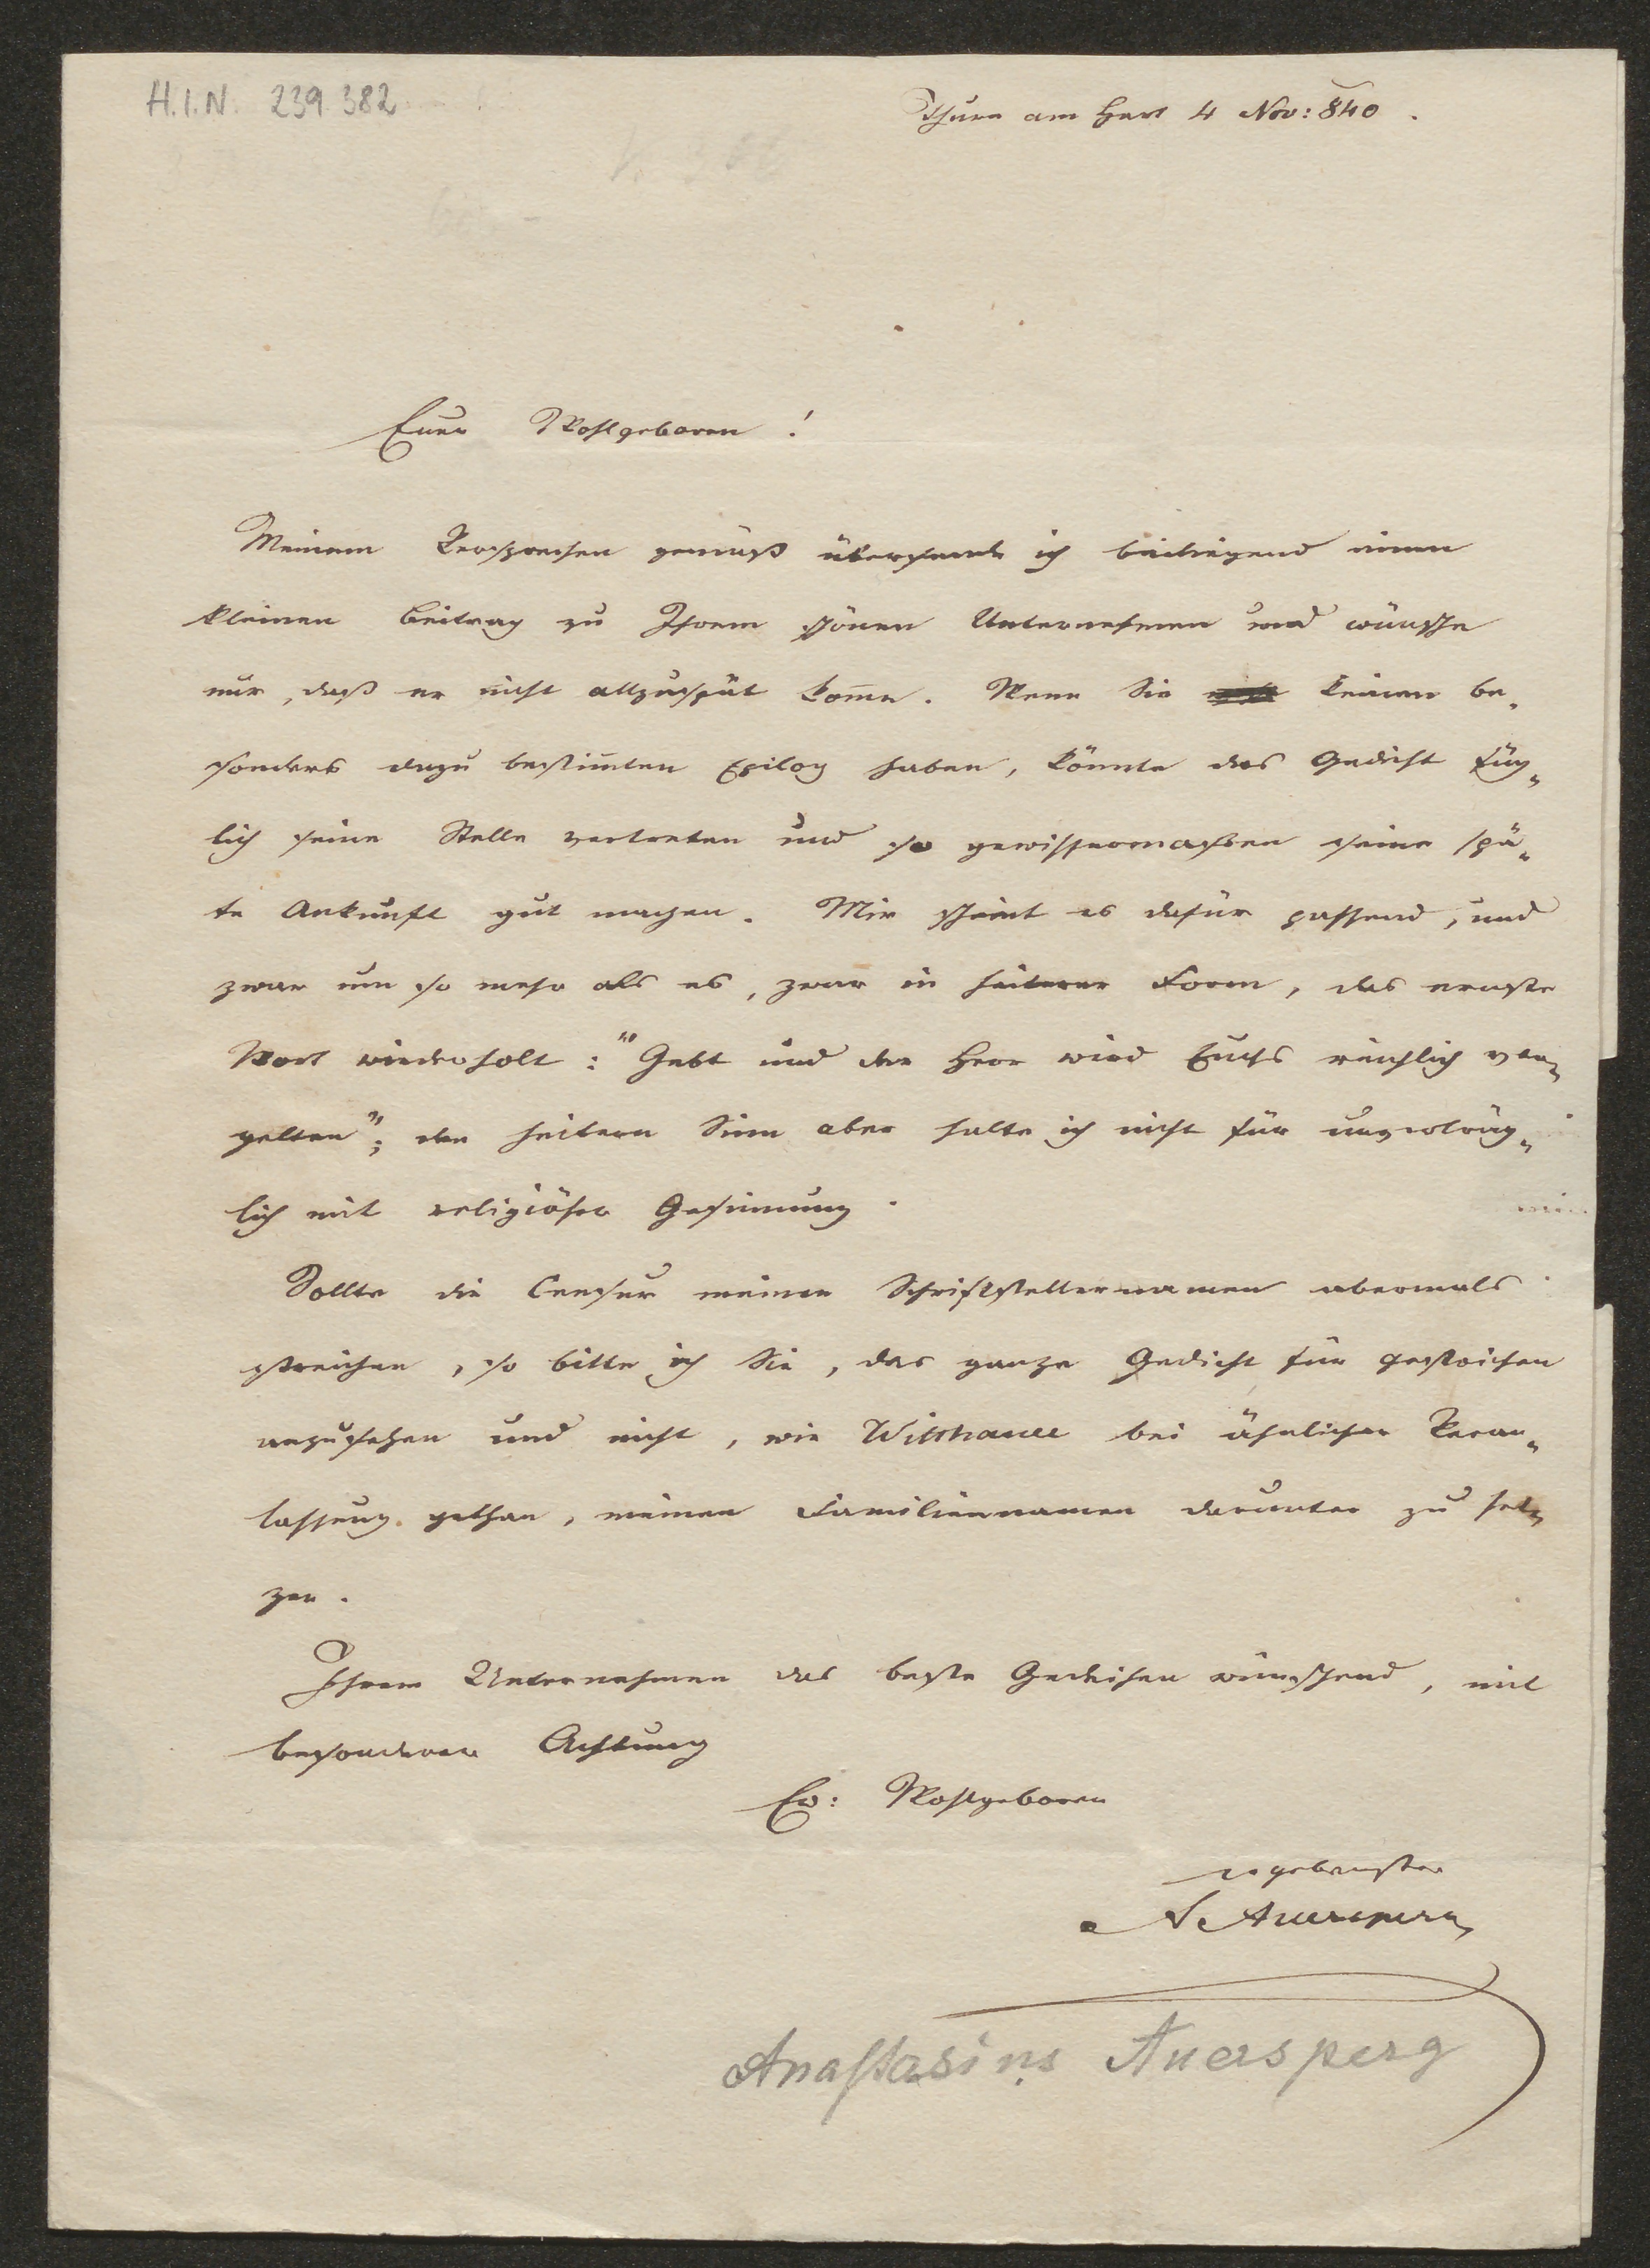 H.I.N. 239.382
Thurn am Hart 4 Nov: 840.
Euer Wohlgeboren!
Meinem Versprechen gemäß übersende ich beiliegend einen
kleinen Beitrag zu Ihrem schönen Unternehmen und wünsche
nur, daß er nicht allzuspät kom̅e. Wenn Sie keinen be„
sonders dazu bestim̅ten Epilog haben, könnte das Gedicht füg„
lich seine Stelle vertreten und so gewissermaßen seine spä„
te Ankunft gut machen. Mir scheint es dafür passend, und
zwar um so mehr als es, zwar in heiterer Form, das ernste
Wort wiederholt: "Gebt und der Herr wird Euchs reichlich ver„
gelten"; den heitern Sinn aber halte ich nicht für unverträg„
lich mit religiöser Gesinnung.
Sollte die Censur meinen Schriftstellernamen abermals
streichen, so bitte ich Sie, das ganze Gedicht für gestrichen
anzusehen und nicht, wie Witthauer bei ähnlicher Veran„
lassung gethan, meinen Familiennamen darunter zu set„
zen.
Ihrem Unternehmen das beste Gedeihen wünschend, mit
besonderer Achtung
Ew: Wohlgeboren
ergebenster
A Auersperg
Anastasius Auersperg